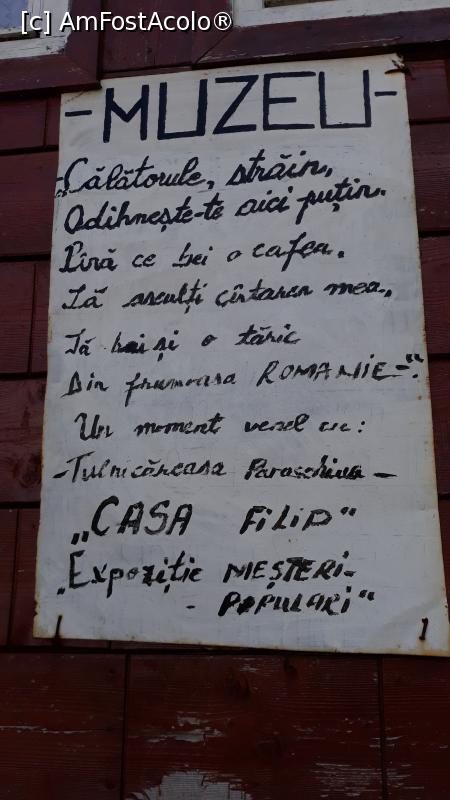 [c] AmFostAcolo®
-MUZEU-
„Călătorule, străin,
Odihnește-te aici puțin.
Pînă ce bei o cafea.
Să asculți cîntarea mea,
Să bei și o tărie
Din frumoasa ROMANIE-“.
Un moment vesel cu:
-Tulnicăreasa Paraschiva-
„CASA FiLiP“
„Expoziție MEȘTERi-
- POPULARi“